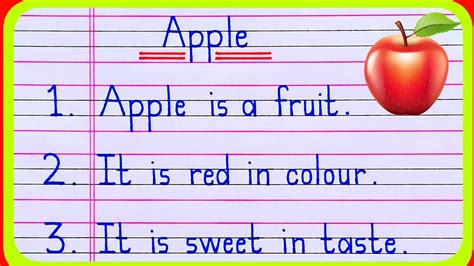 Apple
1. Apple is a fruit.
2. It is red in colour.
3. It is sweet in taste.